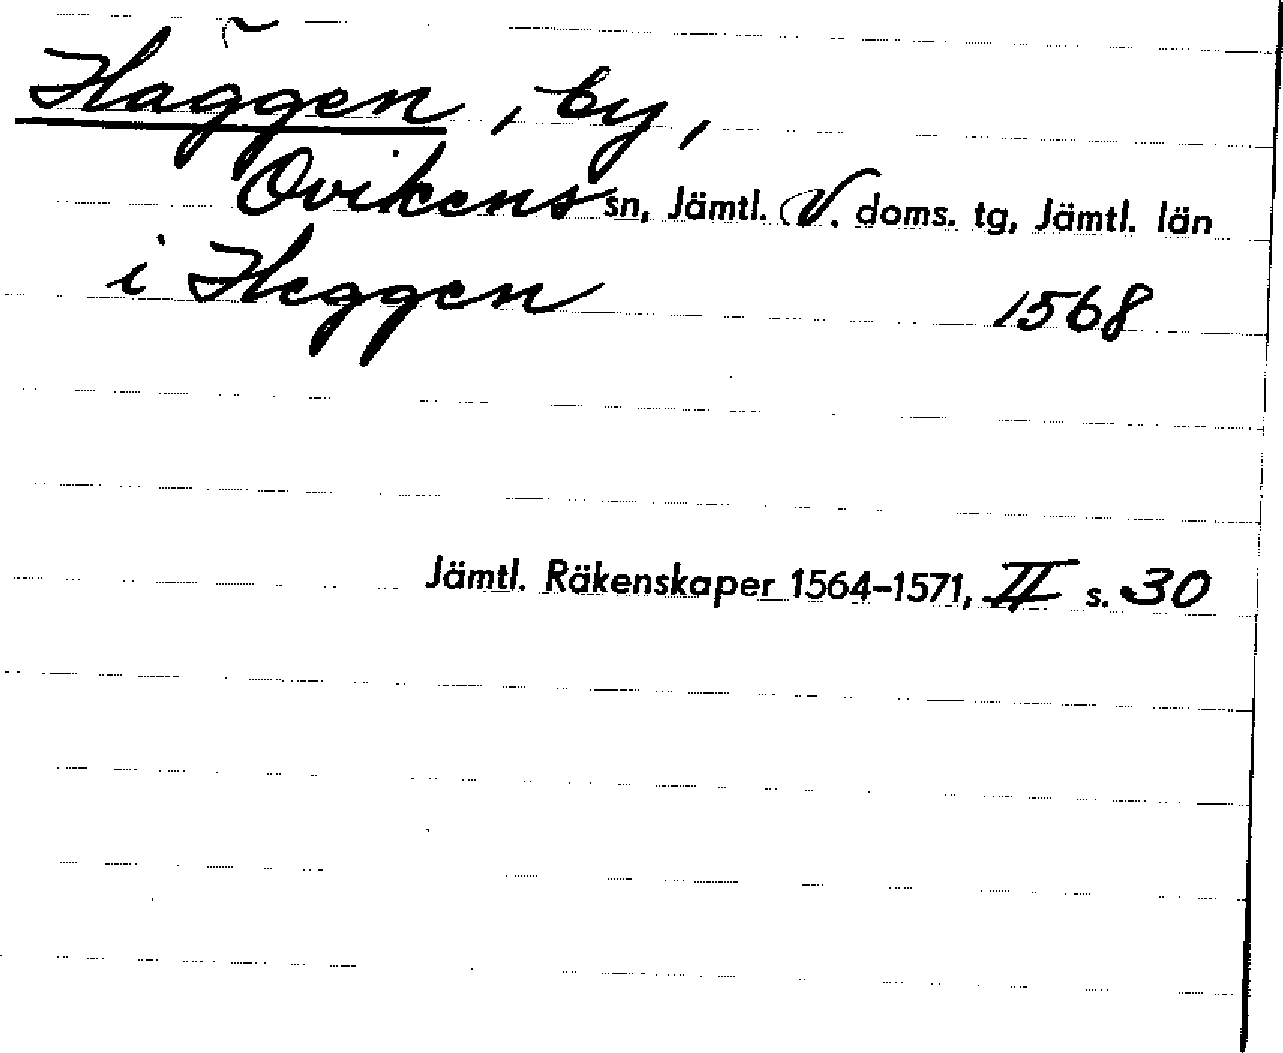 Häggen, by,
Ovikens sn, Jämtl. V. doms. tg, Jämtl. län
i Heggen 1568
Jämtl. Räkenskaper 1564-1571, II s. 30